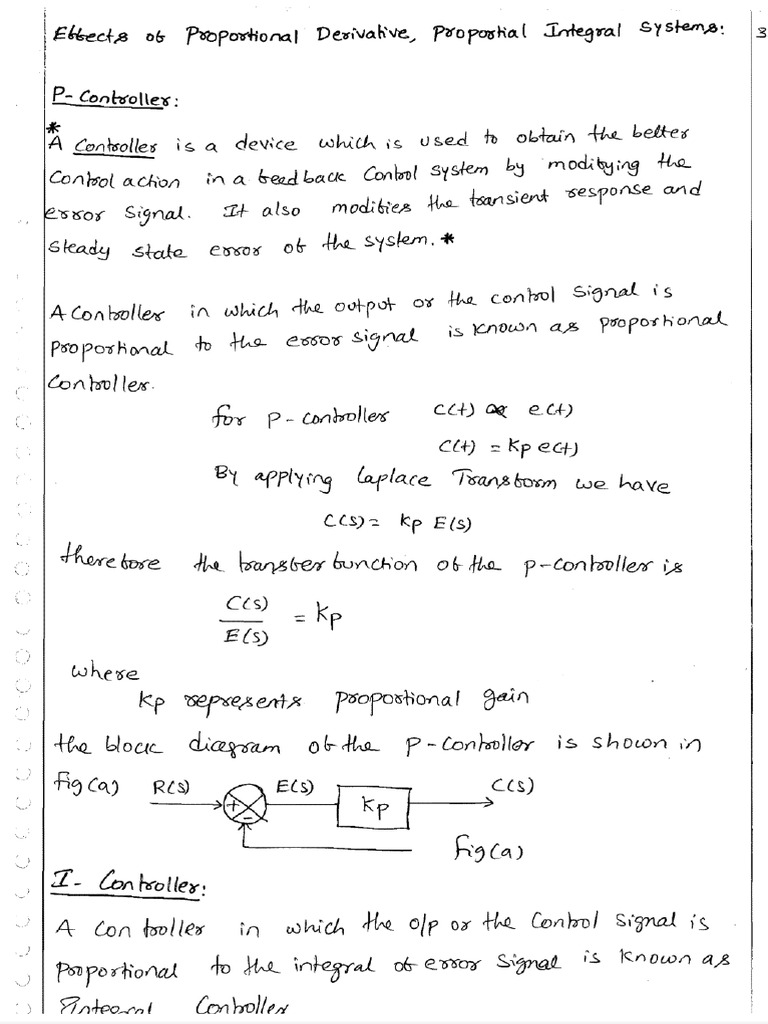 Effects of Proportional Derivative, Proportial Integral Systems: 3
P- Controller:
*
A Controller is a device which is used to obtain the better
Control action in a feedback Control system by modifying the
error Signal. It also modifies the transient response and
Steady state error of the system. *
A Controller in which the output or the control signal is
proportional to the error signal is known as proportional
Controller.
for P- Controller C(t) ∝ e(t)
C(t) = Kp e(t)
By applying Laplace Transform we have
C(s) = Kp E(s)
therefore the transfer function of the p-controller is
C(s)/E(s) = Kp
where
Kp represents proportional gain
the block diagram of the P-Controller is shown in
fig(a) R(s) E(s) C(s)
+ - Kp
fig(a)
I- Controller:
A Controller in which the o/p or the Control signal is
proportional to the integral of error signal is known as
Integral Controller